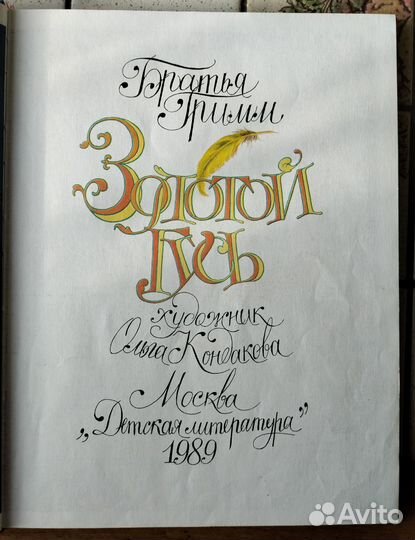 Братья
Гримм
Золотой
Гусь
художник
Ольга Кондакова
Москва
„Детская литература”
1989
Avito